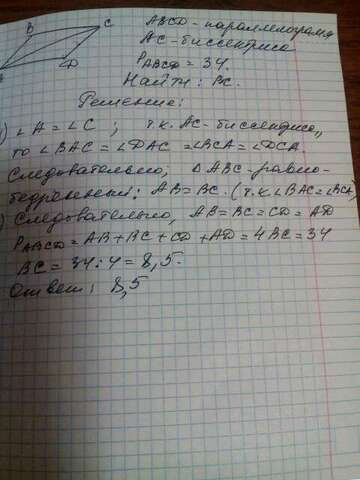 B C
ABCD - параллелограмм
AC - биссектриса
D
P ABCD = 34
Найти: BC.
Решение:
) ∠A = ∠C ; т.к. AC - биссектриса,
то ∠BAC = ∠DAC = ∠BCA = ∠DCA
Следовательно, Δ ABC - равно-
бедренный: AB = BC. (т.к. ∠BAC = ∠BCA)
) Следовательно, AB = BC = CD = AD
P ABCD = AB + BC + CD + AD = 4BC = 34
BC = 34 : 4 = 8,5.
Ответ: 8,5